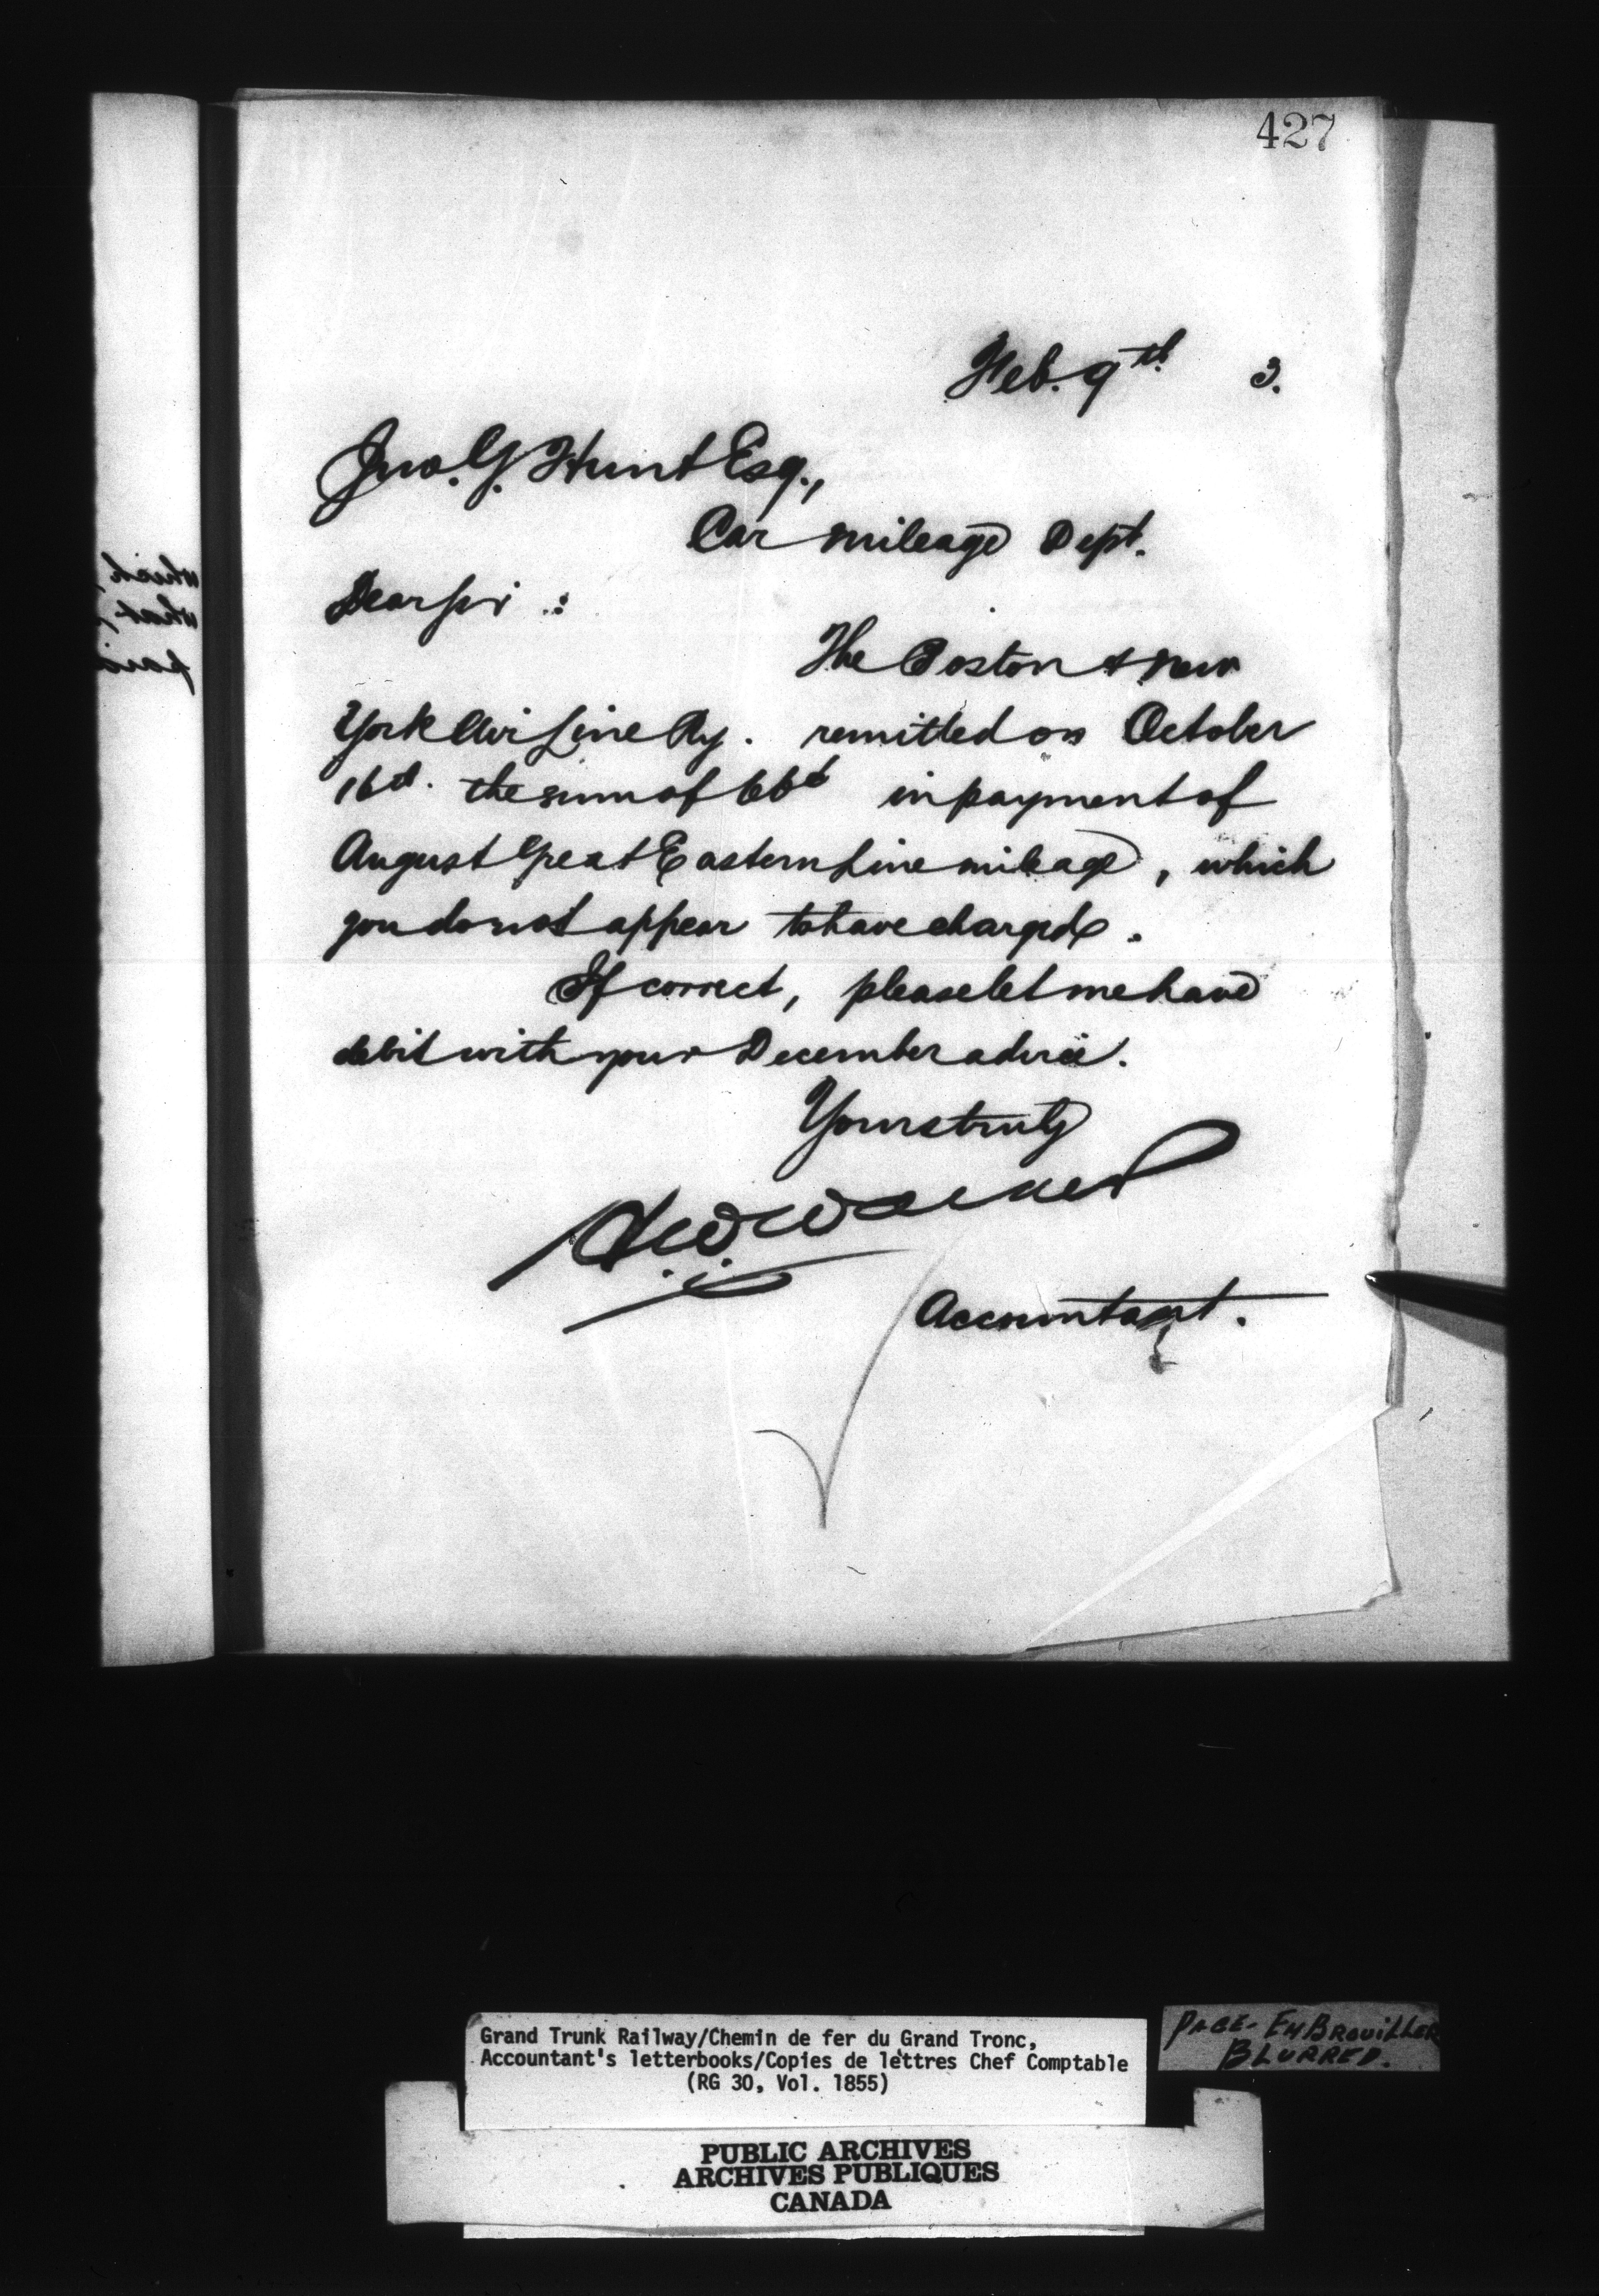 427
Feb. 9th. 3.
Jno. G. Hunt Esq.,
Car Mileage Dept.
Dear Sir :
The Boston & New
York Air Line Ry. remitted on October
16th. the sum of 66¢ in payment of
August Great Eastern Line mileage, which
you do not appear to have charged.
If correct, please let me have
debit with your December advice.
Yours truly
Accountant.
which
what
paid
Grand Trunk Railway/Chemin de fer du Grand Tronc,
Accountant's letterbooks/Copies de lettres Chef Comptable
(RG 30, Vol. 1855)
PAGE-EMBROUILLER
BLURRED.
PUBLIC ARCHIVES
ARCHIVES PUBLIQUES
CANADA